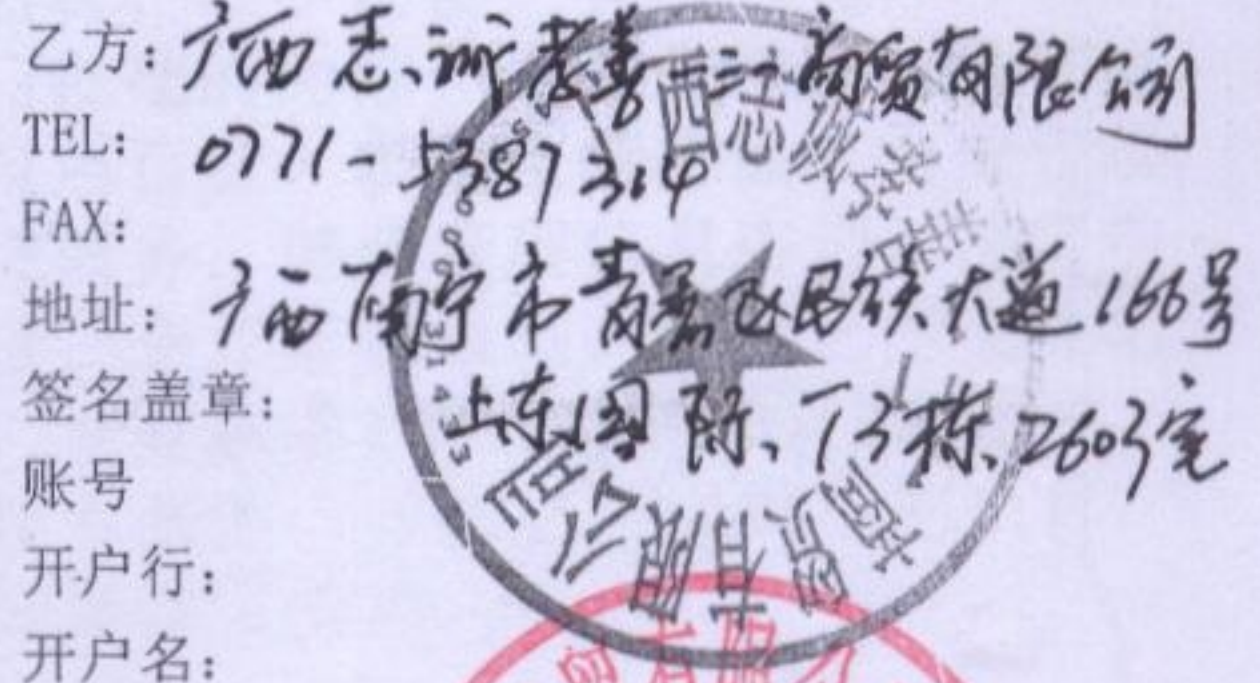 乙方：广西志新孝善三江商贸有限公司
TEL： 0771-5387314
FAX：
地址： 广西南宁市青秀区民族大道166号
上东国际、T3栋、2603室
签名盖章：
账号
开户行：
开户名：
商贸有限公司